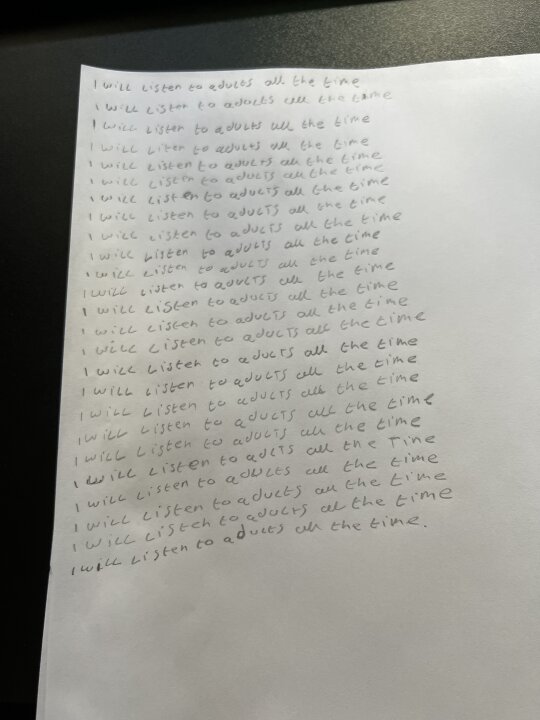 I will listen to adults all the time
I will listen to adults all the time
I will listen to adults all the time
I will liten to adults all the time
I will listen to adults all the time
I will listen to adults all the time
I will listen to adults all the time
I will listen to adults all the time
I will listen to adults all the time
I will listen to adults all the time
I will listen to adults all the time
I will listen to adults all the time
I will listen to adults all the time
I will listen to adults all the time
I will listen to adults all the time
I will listen to adults all the time
I will listen to adults all the time
I will listen to adults all the time
I will listen to adults all the time
I will listen to adults all the time
I will listen to adlts all the tine
I will listen to adults all the time
I will listen to adults all the time
I will listen to adults all the time
I will listen to adults all the time.